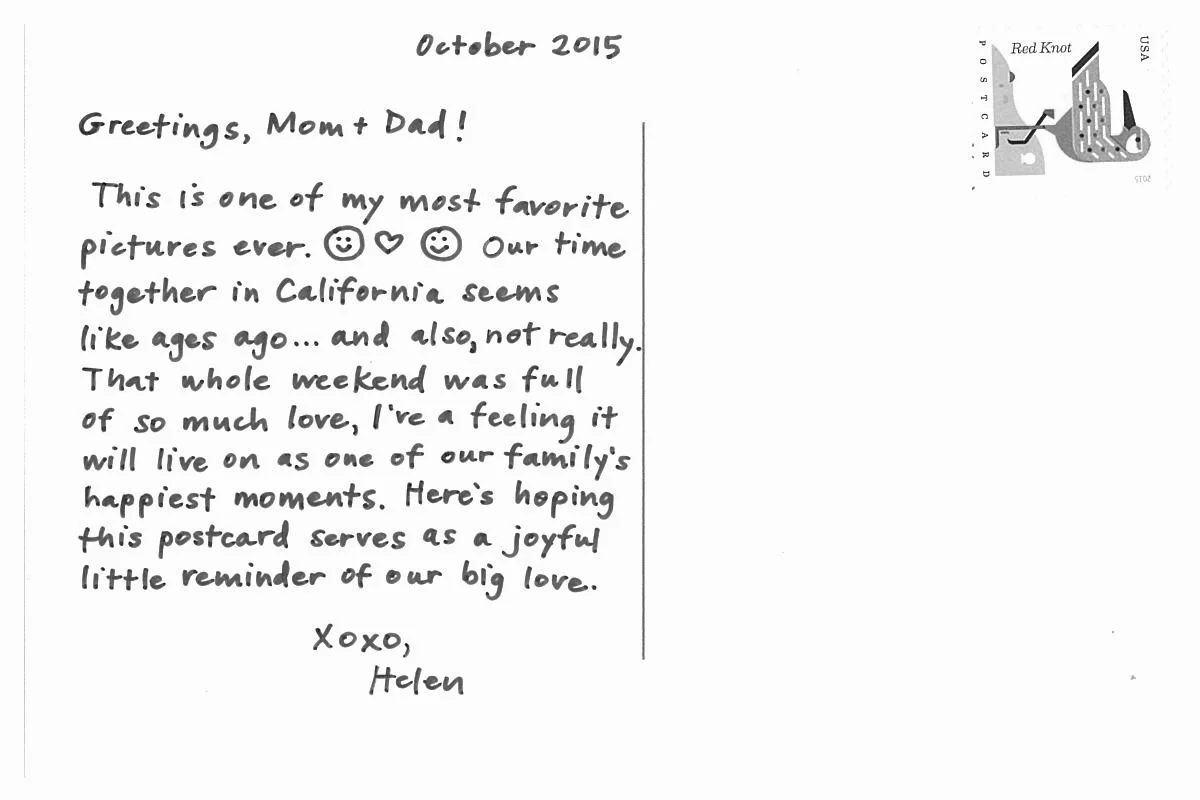 October 2015
Greetings, Mom + Dad!
This is one of my most favorite
pictures ever. ☺ ♡ ☺ Our time
together in California seems
like ages ago... and also, not really.
That whole weekend was full
of so much love, I've a feeling it
will live on as one of our family's
happiest moments. Here's hoping
this postcard serves as a joyful
little reminder of our big love.
Xoxo,
Helen
Red Knot
POSTCARD
USA
2015